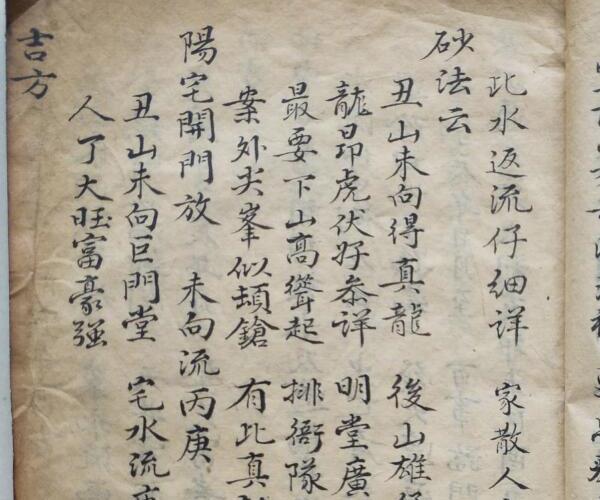 此水返流仔細詳 家散人
砂法云
丑山未向得真龍 後山雄
龍昻虎伏好叅詳 明堂廣
最要下山高聳起 排衙隊
案外尖峯似頓鎗 有此真
陽宅開門放 未向流丙庚
丑山未向巨門堂 宅水流
人丁大旺富豪強
吉方